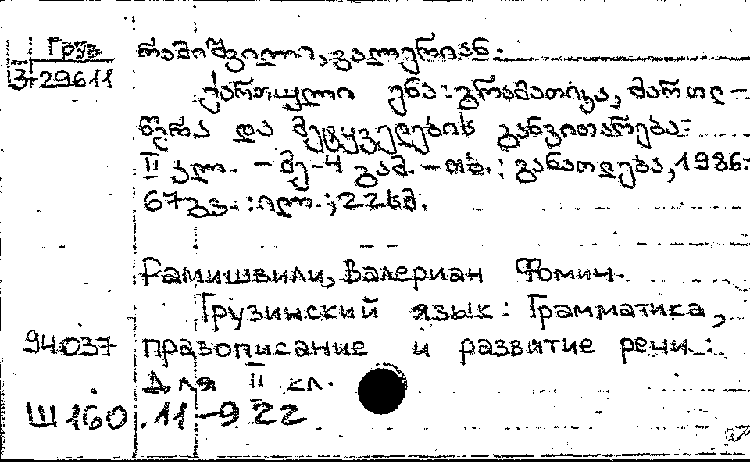 Груз
რამიშვილი, ვალერიან.
3-29611
ქართული ენა: გრამატიკა, მართლ-
წერა და მეტყველების განვითარება:
II კლ. - მე-4 გამ. - თბ.: განათლება, 1986.
67 გვ.: ილ.; 22 სმ.
Рамишвили, Валериан Фомич.
Грузинский язык: Грамматика,
94037 правописание и развитие речи:
Для II кл.
Ш160.11-922